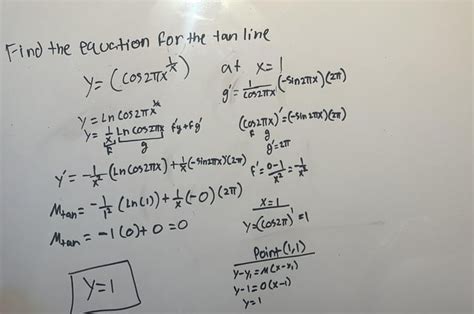 Find the equation for the tan line
y=(cos2πx^(1/x)) at x=1
g'=1/cos2πx (-sin2πx)(2π)
y=Ln cos2πx^(1/x)
y=1/x Ln cos2πx f'g+fg'
F g
(cos2πx)'=(-sin2πx)(2π)
F g
g'=2π
y'=-1/x²(Lncos2πx)+1/x(-sin2πx)(2π)
f'=0-1/x²=-1/x²
Mtan=-1/1²(Ln(1))+1/x(-0)(2π)
Mtan=-1(0)+0=0
x=1
y=(cos2π)'=1
y=1
Point(1,1)
y-y₁=M(x-x₁)
y-1=0(x-1)
y=1